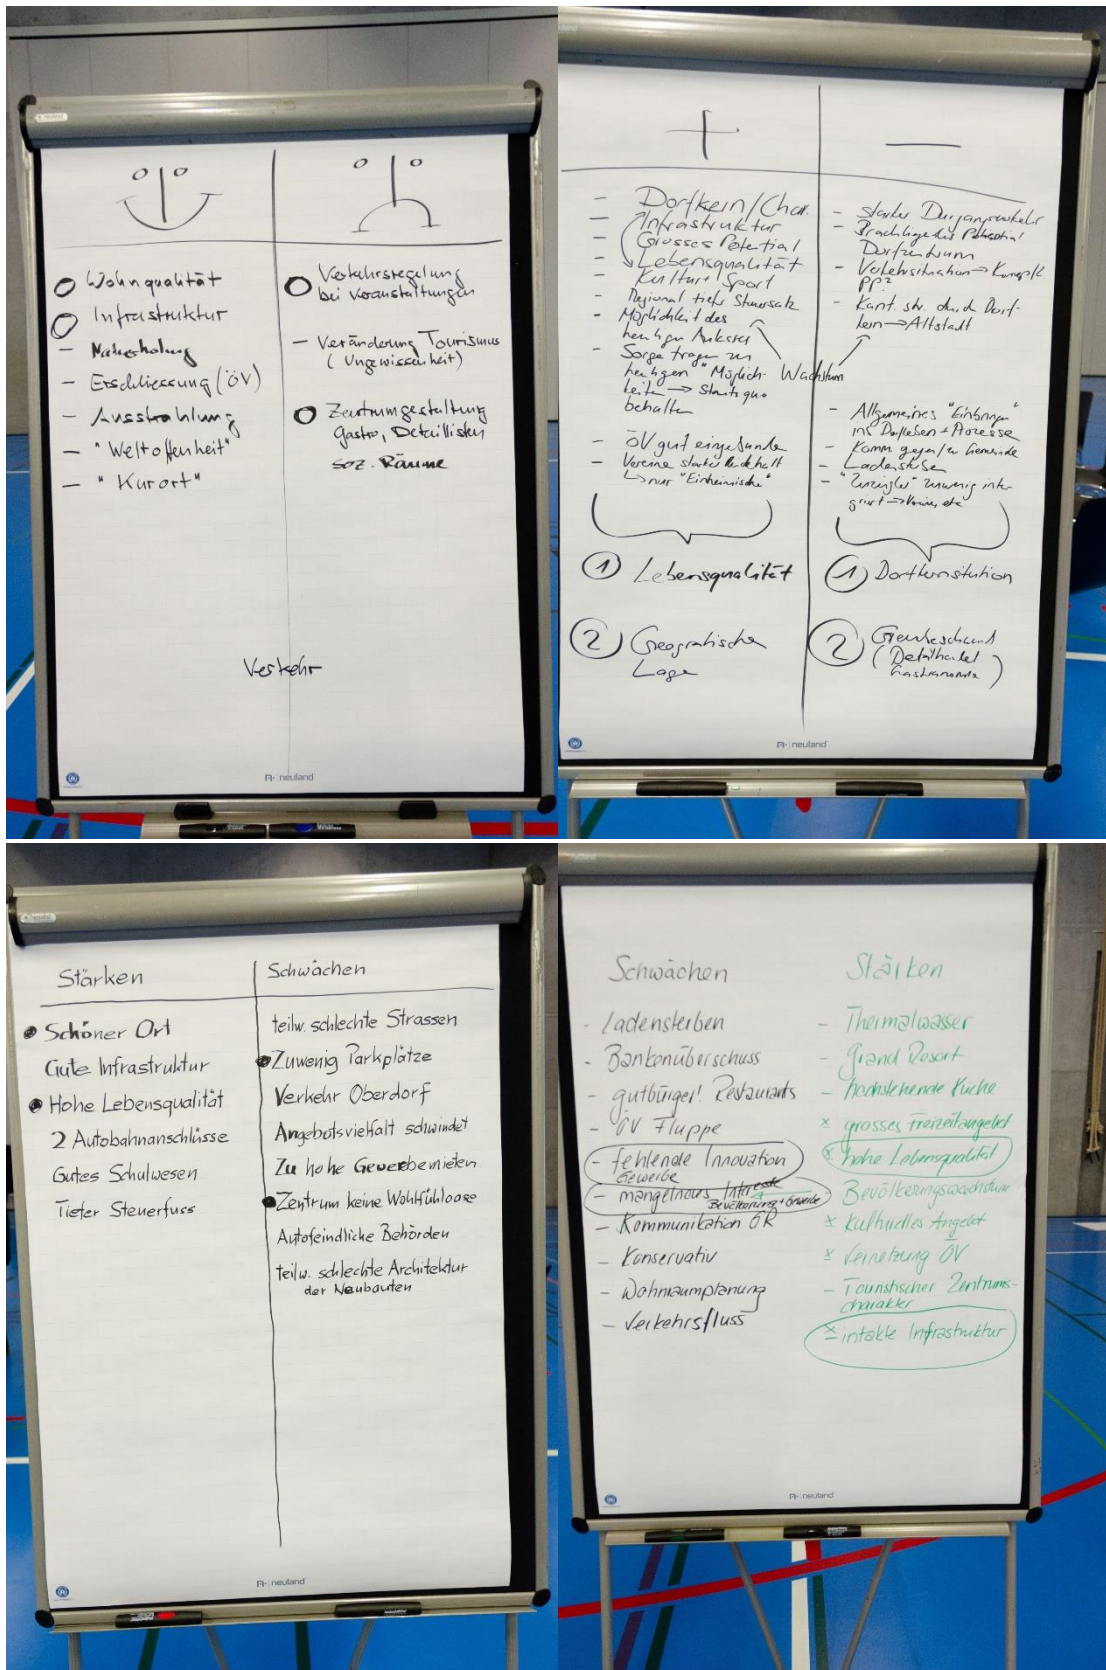 Wohnqualität
Infrastruktur
Naherholung
Erschliessung (ÖV)
Ausstrahlung
"Weltoffenheit"
"Kurort"
Verkehrsregelung
bei Veranstaltungen
Veränderung Tourismus
(Ungewissenheit)
Zentrumgestaltung
Gastro, Detaillisten
soz. Räume
Verkehr
neuland
+
—
Dorfkern/Char.
Infrastruktur
Grosses Potential
Lebensqualität
Kultur + Sport
Regional tiefer Steuersatz
Möglichkeit des
heutigen
Sorge tragen zu
heutigen "Möglich-
keiten → Status quo
behalten
ÖV gut eingebunden
Vereine starker Rückhalt
↳ nur "Einheimische"
Wachstum
starker Durgangsverkehr
Brachliegendes Potential
Dorfzentrum
Verkehrsituation →
Kant. str. durch Dorf-
kern → Altstadt
Allgemeines "Einbringen"
ins Dorfleben + Prozesse
Komm. gegen/zu Gemeinde
Ladensterben
"Zuzügler" zuwenig inte-
griert → Vereine etc
1 Lebensqualität
2 Geografische
Lage
1 Dorfkernsitution
2
(Detailhandel
Gastronomie)
neuland
Stärken
Schöner Ort
Gute Infrastruktur
Hohe Lebensqualität
2 Autobahnanschlüsse
Gutes Schulwesen
Tiefer Steuerfuss
Schwächen
teilw. schlechte Strassen
Zuwenig Parkplätze
Verkehr Oberdorf
Angebotsvielfalt schwindet
Zu hohe Gewerbemieten
Zentrum keine Wohlfühloase
Autofeindliche Behörden
teilw. schlechte Architektur
der Neubauten
neuland
Schwächen
- Ladensterben
- Bankenüberschuss
- gutbürgerl. Restaurants
- ÖV Fluppe
- fehlende Innovation
Gewerbe
- mangelndes Interesse
Bevölkerung + Gewerbe
- Kommunikation GR
- Konservativ
- Wohnraumplanung
- Verkehrsfluss
Stärken
- Thermalwasser
- Grand Resort
- hochstehende Küche
x grosses Freizeitangebot
x hohe Lebensqualität
Bevölkerungswachstum
x kulturelles Angebot
x Vernetzung ÖV
- Touristischer Zentrums-
charakter
x intakte Infrastruktur
neuland